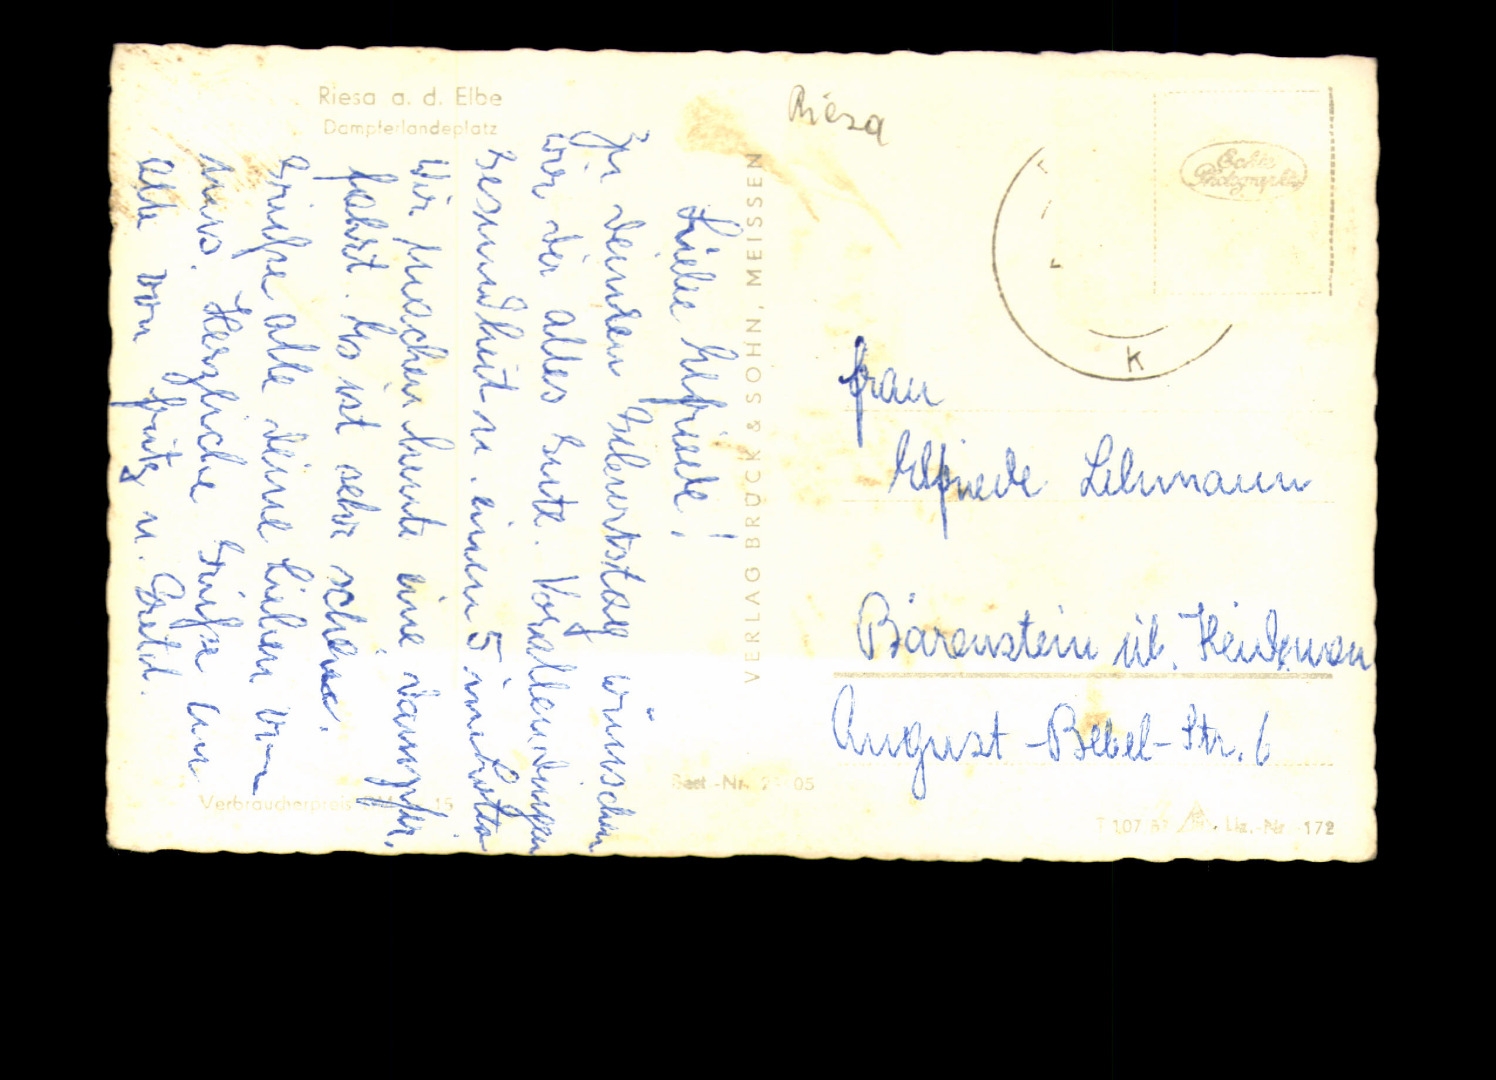 Riesa a. d. Elbe
Dampferlandeplatz
Liebe Elfriede!
Zu deinem Geburtstag wünschen
wir dir alles Gute. Vor allen dingen
Gesundheit u. einen 5 im Lotto
Wir machen heute eine Dampfer,
fahrt. Es ist sehr schön.
Grüße alle deine Lieben von
uns. Herzliche Grüße an
alle von Fritz u. Gretel.
VERLAG BRÜCK & SOHN, MEISSEN
Riesa
Echte
Photographie
K
Frau
Elfriede Lehmann
Bärenstein üb. Heidenau
August-Bebel-Str. 6
Best.-Nr. 05
Verbraucherpreis 15
Liz.-Nr. 172